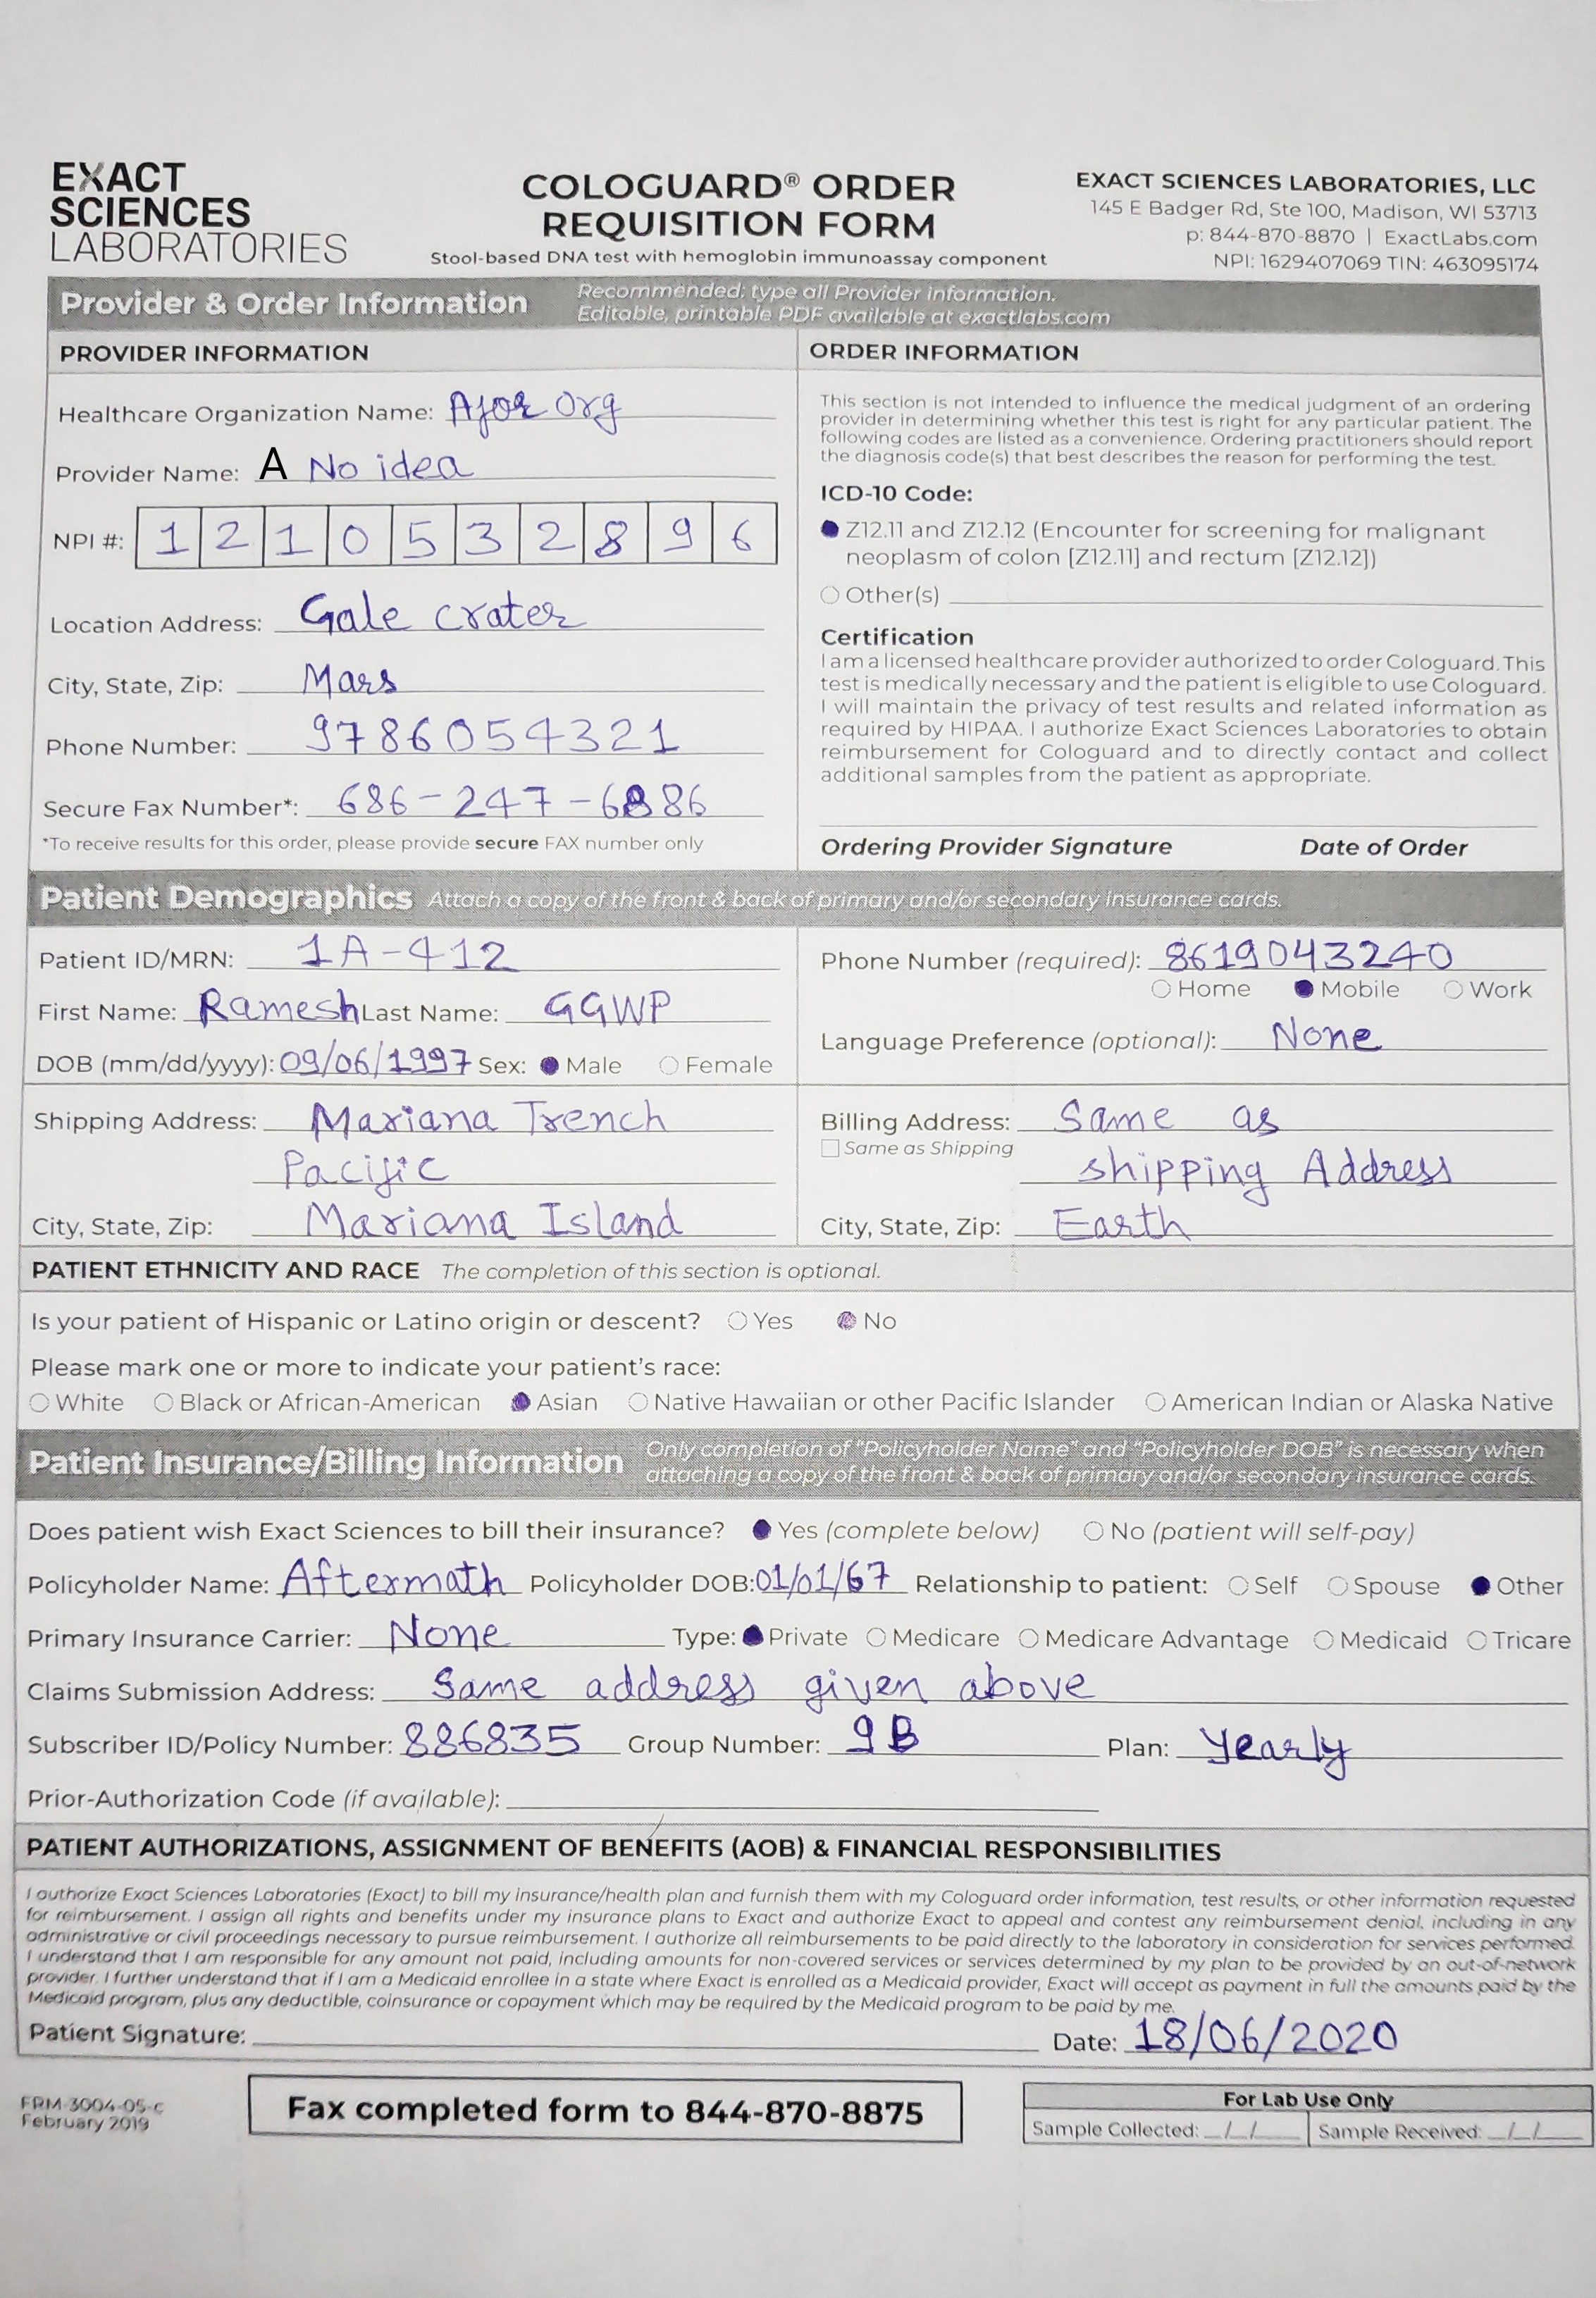 EXACT
SCIENCES
LABORATORIES
COLOGUARD® ORDER
REQUISITION FORM
Stool-based DNA test with hemoglobin immunoassay component
EXACT SCIENCES LABORATORIES, LLC
145 E Badger Rd, Ste 100, Madison, WI 53713
p: 844-870-8870 | ExactLabs.com
NPI: 1629407069 TIN: 463095174
Provider & Order Information
Recommended: type all Provider information.
Editable, printable PDF available at exactlabs.com
PROVIDER INFORMATION
Healthcare Organization Name: Ajor Org
Provider Name: A No idea
NPI #: 1 2 1 0 5 3 2 8 9 6
Location Address: Gale crater
City, State, Zip: Mars
Phone Number: 9786054321
Secure Fax Number*: 686-247-6886
*To receive results for this order, please provide secure FAX number only
ORDER INFORMATION
This section is not intended to influence the medical judgment of an ordering
provider in determining whether this test is right for any particular patient. The
following codes are listed as a convenience. Ordering practitioners should report
the diagnosis code(s) that best describes the reason for performing the test.
ICD-10 Code:
Z12.11 and Z12.12 (Encounter for screening for malignant
neoplasm of colon [Z12.11] and rectum [Z12.12])
Other(s)
Certification
I am a licensed healthcare provider authorized to order Cologuard. This
test is medically necessary and the patient is eligible to use Cologuard.
I will maintain the privacy of test results and related information as
required by HIPAA. I authorize Exact Sciences Laboratories to obtain
reimbursement for Cologuard and to directly contact and collect
additional samples from the patient as appropriate.
Ordering Provider Signature Date of Order
Patient Demographics Attach a copy of the front & back of primary and/or secondary insurance cards.
Patient ID/MRN: 1A-412
First Name: Ramesh Last Name: GGWP
DOB (mm/dd/yyyy): 09/06/1997 Sex: Male Female
Phone Number (required): 8619043240
Home Mobile Work
Language Preference (optional): None
Shipping Address: Mariana Trench
Pacific
City, State, Zip: Mariana Island
Billing Address: Same as
Same as Shipping
shipping Address
City, State, Zip: Earth
PATIENT ETHNICITY AND RACE The completion of this section is optional.
Is your patient of Hispanic or Latino origin or descent? Yes No
Please mark one or more to indicate your patient's race:
White Black or African-American Asian Native Hawaiian or other Pacific Islander American Indian or Alaska Native
Patient Insurance/Billing Information
Only completion of "Policyholder Name" and "Policyholder DOB" is necessary when
attaching a copy of the front & back of primary and/or secondary insurance cards.
Does patient wish Exact Sciences to bill their insurance? Yes (complete below) No (patient will self-pay)
Policyholder Name: Aftermath Policyholder DOB: 01/01/67 Relationship to patient: Self Spouse Other
Primary Insurance Carrier: None Type: Private Medicare Medicare Advantage Medicaid Tricare
Claims Submission Address: Same address given above
Subscriber ID/Policy Number: 886835 Group Number: 9B Plan: Yearly
Prior-Authorization Code (if available):
PATIENT AUTHORIZATIONS, ASSIGNMENT OF BENEFITS (AOB) & FINANCIAL RESPONSIBILITIES
I authorize Exact Sciences Laboratories (Exact) to bill my insurance/health plan and furnish them with my Cologuard order information, test results, or other information requested
for reimbursement. I assign all rights and benefits under my insurance plans to Exact and authorize Exact to appeal and contest any reimbursement denial, including in any
administrative or civil proceedings necessary to pursue reimbursement. I authorize all reimbursements to be paid directly to the laboratory in consideration for services performed.
I understand that I am responsible for any amount not paid, including amounts for non-covered services or services determined by my plan to be provided by an out-of-network
provider. I further understand that if I am a Medicaid enrollee in a state where Exact is enrolled as a Medicaid provider, Exact will accept as payment in full the amounts paid by the
Medicaid program, plus any deductible, coinsurance or copayment which may be required by the Medicaid program to be paid by me.
Patient Signature: Date: 18/06/2020
FRM-3004-05-c
February 2019
Fax completed form to 844-870-8875
For Lab Use Only
Sample Collected: / / Sample Received: / /